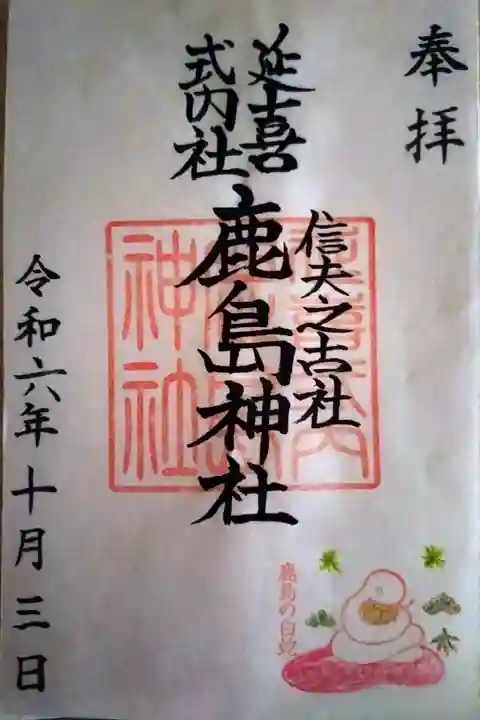 奉拝
延喜
式内社
信夫之古社
鹿島神社
令和六年十月三日
神社
鹿島の白蛇